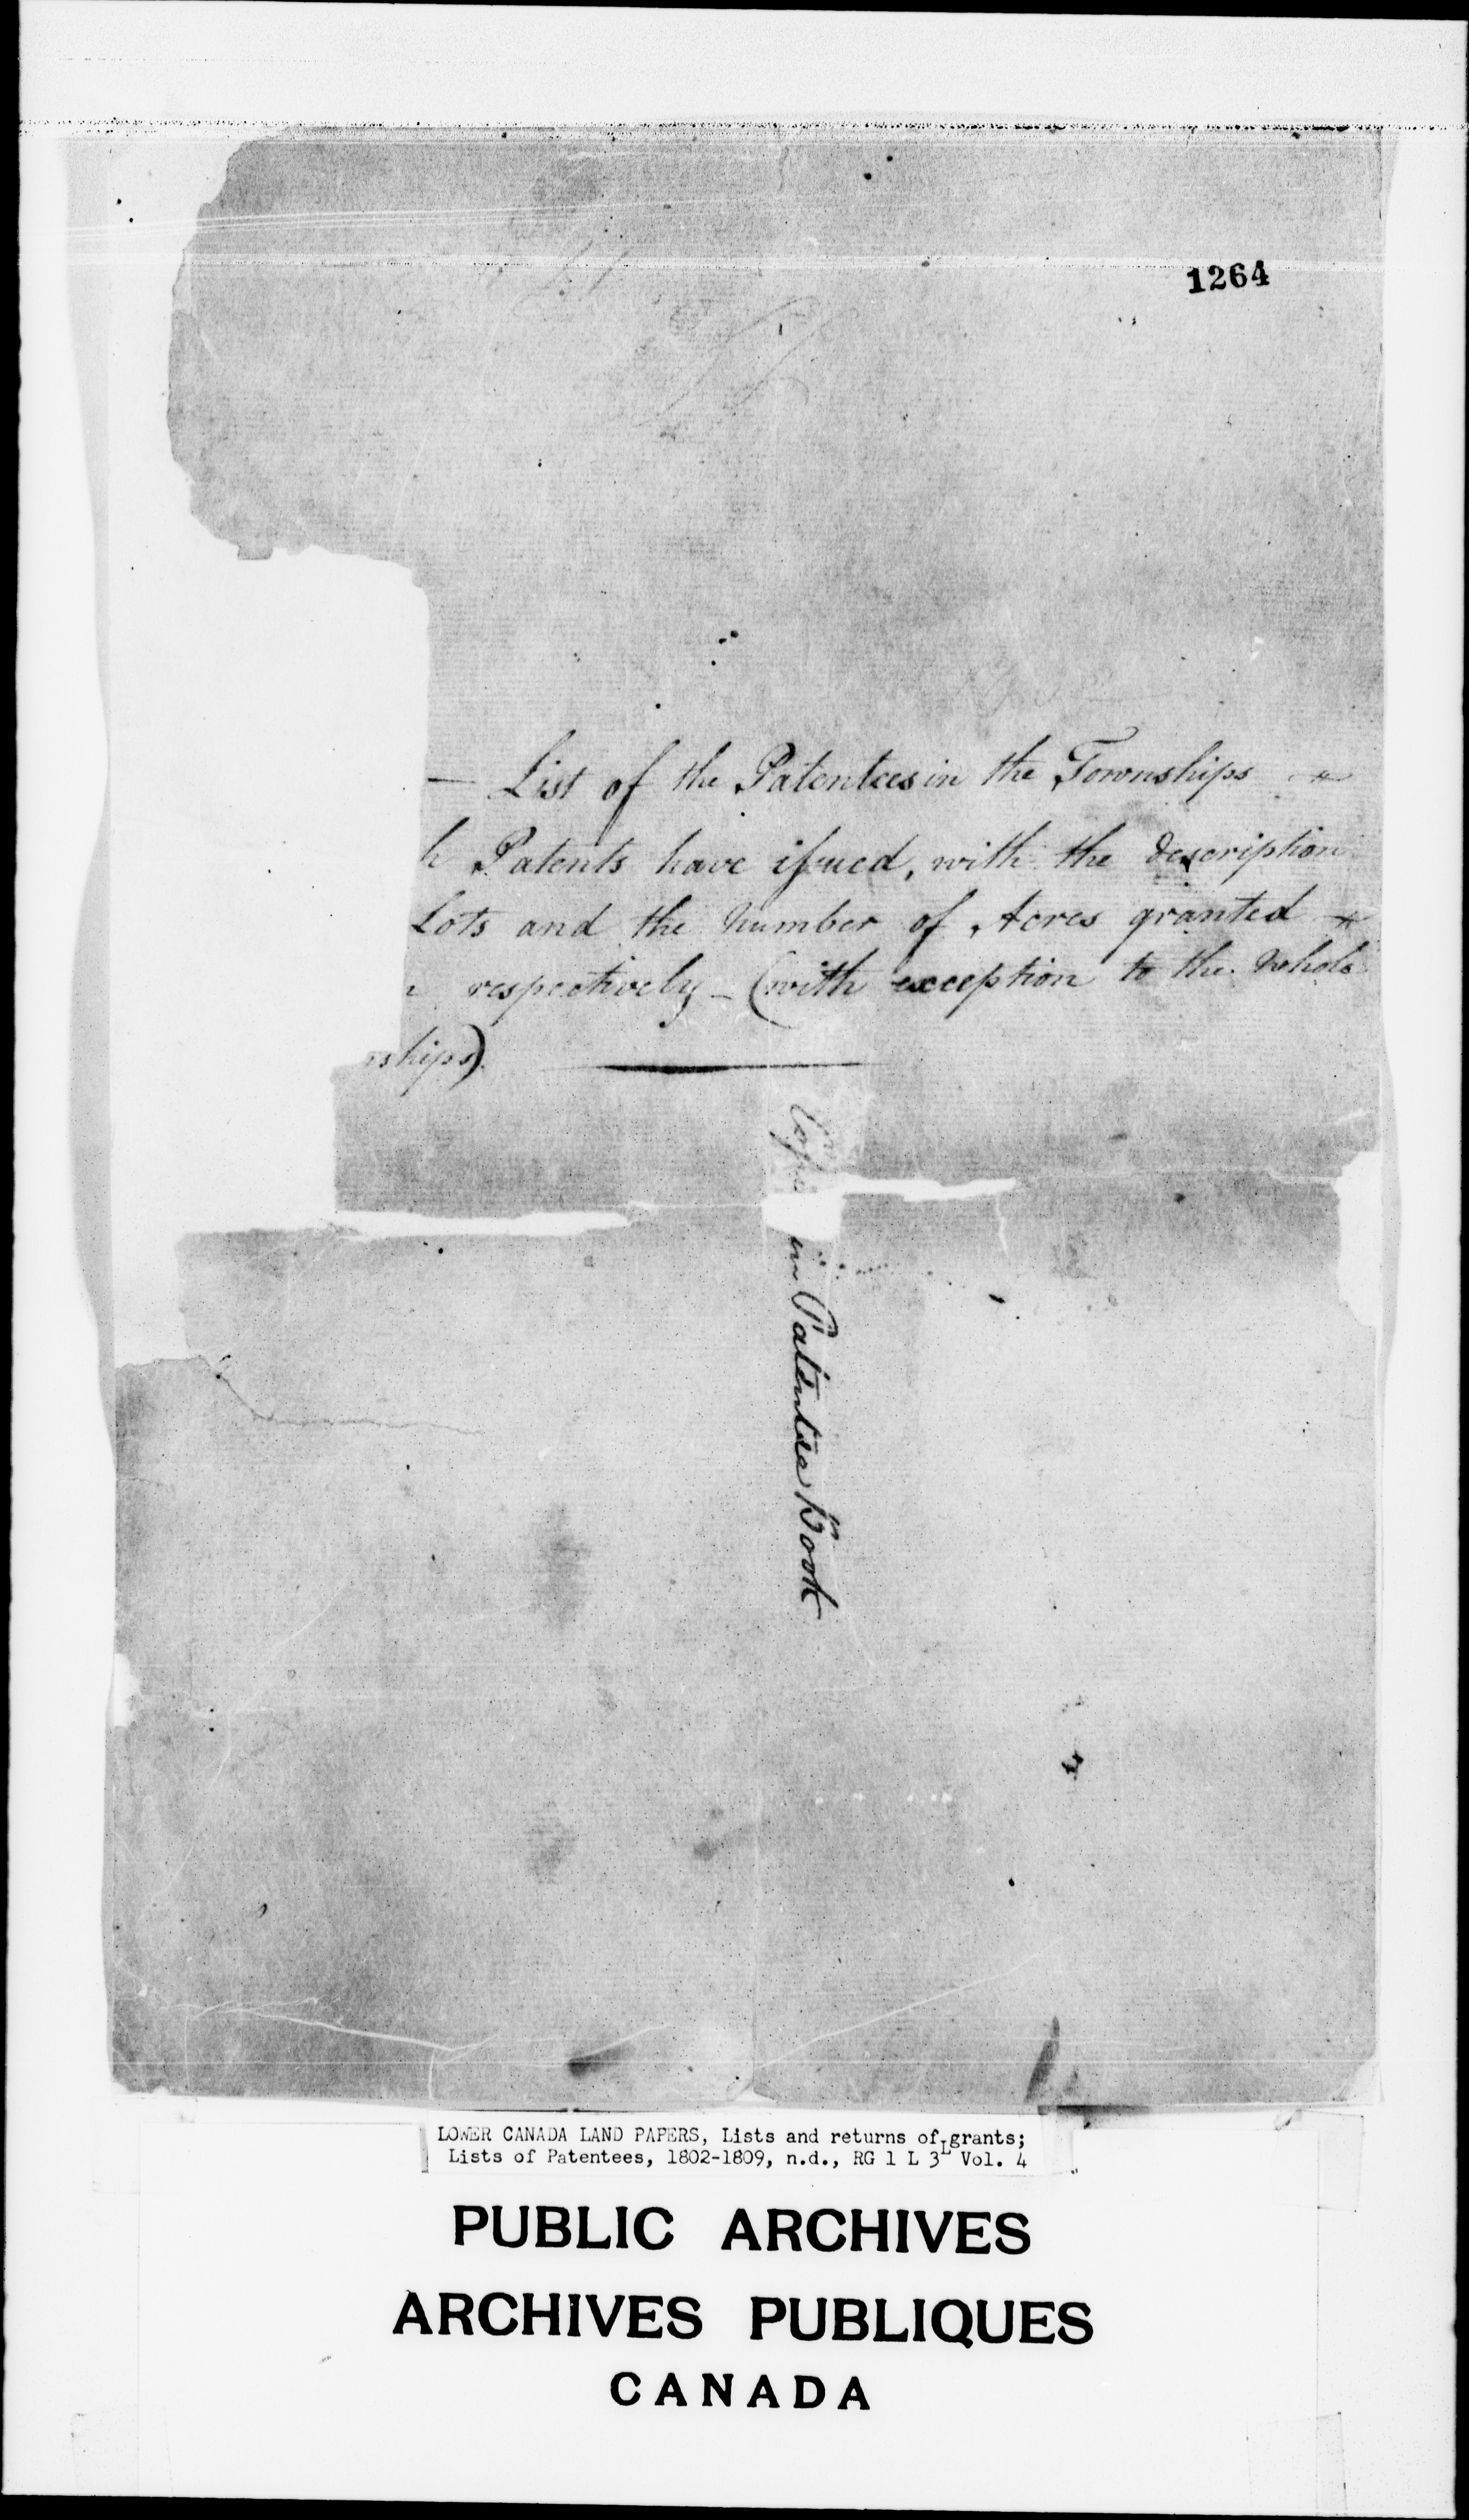 1264
— List of the Patentees in the Townships
h Patents have issued, with the description
Lots and the Number of Acres granted
respectively — (with exception to the whole
ships).
in Patentees Book
LOWER CANADA LAND PAPERS, Lists and returns of grants;
Lists of Patentees, 1802-1809, n.d., RG 1 L 3L Vol. 4
PUBLIC ARCHIVES
ARCHIVES PUBLIQUES
CANADA